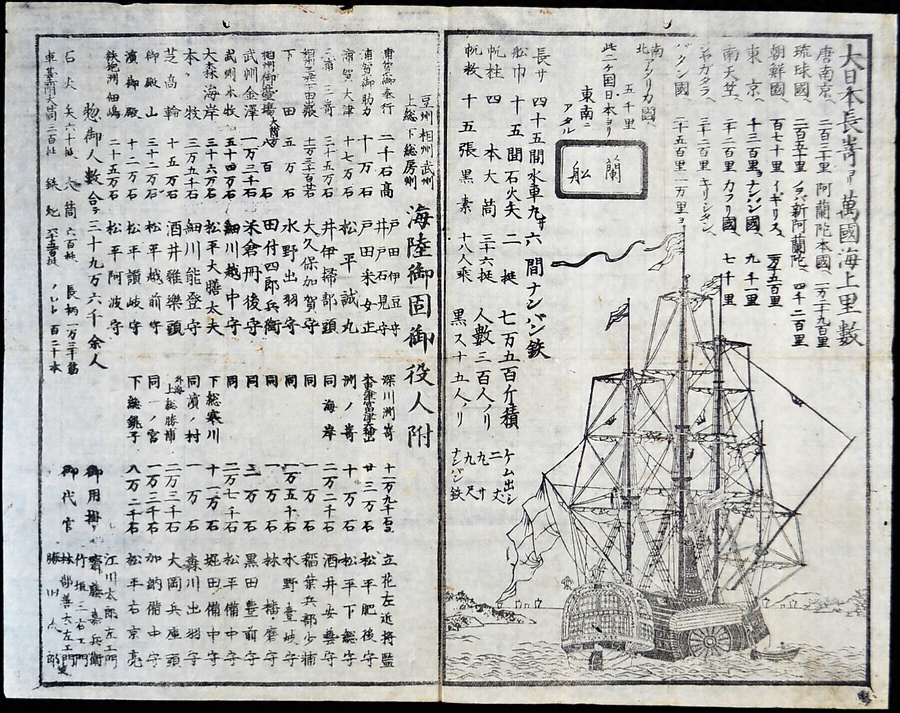 大日本長崎ヨリ萬國海上里數
唐南京、二百三十里
阿蘭陀本國、一万二千九百里
琉球國、二百五十里
ノヲバ新阿蘭陀、四千二百里
朝鮮國、百七十里
イギリス、一万千五百里
東京ヘ、千三百里
ナンバン國、九千一里
南天竺、二千二百里
カフリ國、七千里
ジャガタラヘ、三千二百里
キリシタン、
バタン國、二千五百里
一万里
南北アメリカ國、
五千里
此二ケ国日本ヨリ
東南ニ
アタル
蘭船
長サ四十五間
水車九サ六間ナンバン鉄
舩巾十五間
石火矢二挺
七万五百斤積
帆柱四本
大筒三十六挺
人數三百人ノリ
帆数十五張
黒素十八人乘
黒ス十五人ノリ
ケム出シ
二丈
九尺
九寸
ナンバン鉄
豆州相州武州
上総下総房州
海陸御固御役人附
浦賀御奉行二千石高戸田伊豆守
井戸石見守
浦賀御助力十万石戸田采女正
浦賀大津十七万石松平誠丸
三浦三崎三十五万石井伊掃部頭
大久保加賀守
下田五万石水野出羽守
八百石田付四郎兵衛
武州金澤一万二千石米倉丹後守
武州本牧五十四万石細川越中守
大森海岸三十六万石松平大膳大夫
本牧三万五千石細川能登守
芝高輪十五万石酒井雅樂頭
御殿山三十二万石松平越前守
濱御殿十二万石松平讃岐守
鉄炮洲佃嶋二十五万石松平阿波守
惣御人數合テ三十九万六千余人
石火矢六十挺
大筒六百挺
長柄一万三千筋
深川洲崎十一万九千石立花左近将監
廿三万石松平肥後守
洲ノ崎十万石松平下総守
同海岸二万二千石酒井安藝守
同一万石稲葉兵部少輔
同一万五千石水野壹岐守
同一万石林播磨守
同三万石黒田豊前守
同二万七千石松平備中守
下総寒川十一万石堀田備中守
同濱ノ村一万石森川出羽守
外海上総勝浦二万三千石大岡兵庫頭
同一ノ宮一万三千石加納備中守
下総銚子八万二千石松平右京亮
御用掛リ江川太郎左エ門
齋藤嘉兵衛
御代官竹垣三右エ門
林部善太左エ門